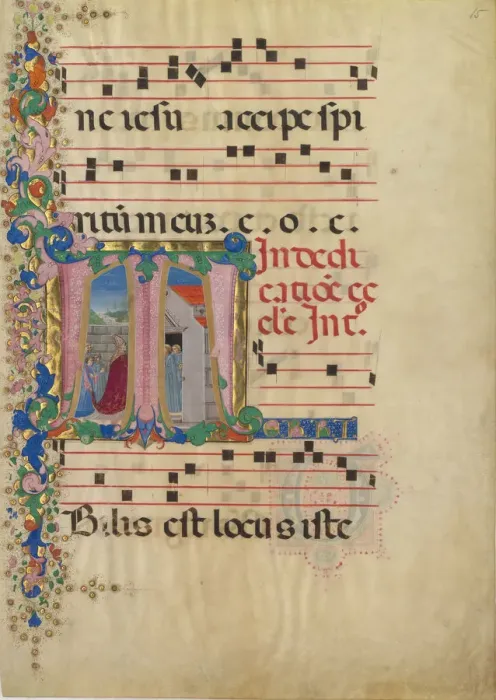 15
ne iesu accipe spi
ritū meuz. e. o. e.
In dedi
catiōe ec
cl'e Int°.
T
Bilis est locus iste